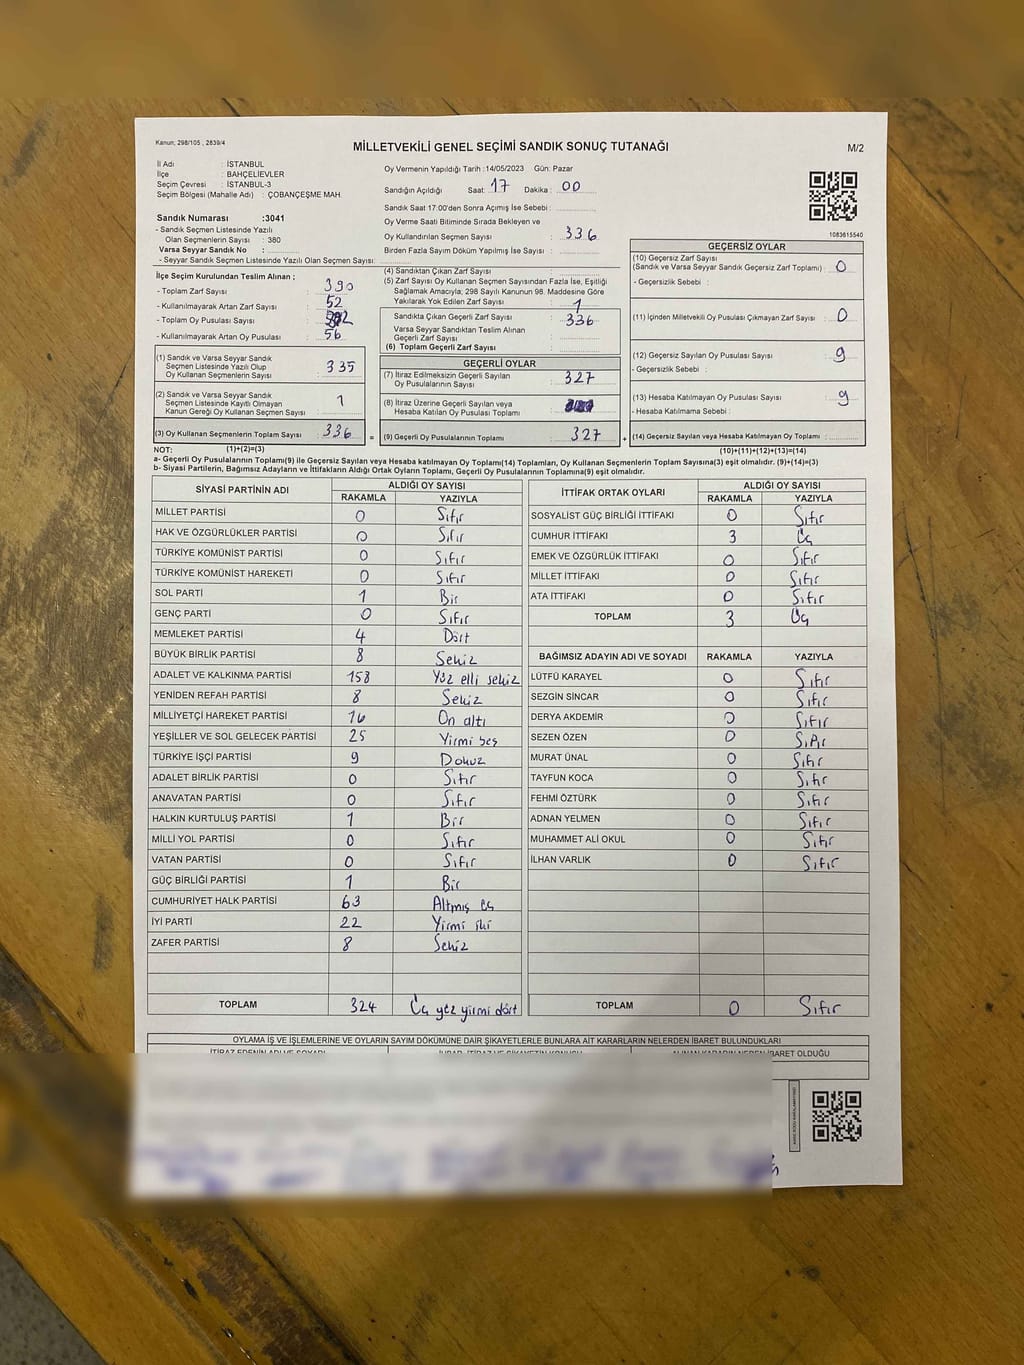 Kanun, 298/105 , 2839/4
MİLLETVEKİLİ GENEL SEÇİMİ SANDIK SONUÇ TUTANAĞI
M/2
İl Adı : İSTANBUL
İlçe : BAHÇELİEVLER
Seçim Çevresi : İSTANBUL-3
Seçim Bölgesi (Mahalle Adı) : ÇOBANÇEŞME MAH.
Sandık Numarası :3041
- Sandık Seçmen Listesinde Yazılı
Olan Seçmenlerin Sayısı : 380
Varsa Seyyar Sandık No :
- Seyyar Sandık Seçmen Listesinde Yazılı Olan Seçmen Sayısı:
Oy Vermenin Yapıldığı Tarih :14/05/2023 Gün: Pazar
Sandığın Açıldığı Saat: 17 Dakika : 00
Sandık Saat 17:00'den Sonra Açılmış İse Sebebi :
Oy Verme Saati Bitiminde Sırada Bekleyen ve
Oy Kullandırılan Seçmen Sayısı : 336
Birden Fazla Sayım Döküm Yapılmış İse Sayısı :
1083615540
İlçe Seçim Kurulundan Teslim Alınan ;
- Toplam Zarf Sayısı : 390
- Kullanılmayarak Artan Zarf Sayısı : 52
- Toplam Oy Pusulası Sayısı :
- Kullanılmayarak Artan Oy Pusulası : 56
(1) Sandık ve Varsa Seyyar Sandık
Seçmen Listesinde Yazılı Olup
Oy Kullanan Seçmenlerin Sayısı : 335
(2) Sandık ve Varsa Seyyar Sandık
Seçmen Listesinde Kayıtlı Olmayan
Kanun Gereği Oy Kullanan Seçmen Sayısı : 1
(3) Oy Kullanan Seçmenlerin Toplam Sayısı : 336
(4) Sandıktan Çıkan Zarf Sayısı :
(5) Zarf Sayısı Oy Kullanan Seçmen Sayısından Fazla İse, Eşitliği
Sağlamak Amacıyla; 298 Sayılı Kanunun 98. Maddesine Göre
Yakılarak Yok Edilen Zarf Sayısı : 1
Sandıkta Çıkan Geçerli Zarf Sayısı : 336
Varsa Seyyar Sandıktan Teslim Alınan
Geçerli Zarf Sayısı :
(6) Toplam Geçerli Zarf Sayısı :
GEÇERLİ OYLAR
(7) İtiraz Edilmeksizin Geçerli Sayılan
Oy Pusulalarının Sayısı : 327
(8) İtiraz Üzerine Geçerli Sayılan veya
Hesaba Katılan Oy Pusulası Toplamı :
= (9) Geçerli Oy Pusulalarının Toplamı : 327 +
GEÇERSİZ OYLAR
(10) Geçersiz Zarf Sayısı
(Sandık ve Varsa Seyyar Sandık Geçersiz Zarf Toplamı) : 0
- Geçersizlik Sebebi :
(11) İçinden Milletvekili Oy Pusulası Çıkmayan Zarf Sayısı : 0
(12) Geçersiz Sayılan Oy Pusulası Sayısı : 9
- Geçersizlik Sebebi :
(13) Hesaba Katılmayan Oy Pusulası Sayısı : 9
- Hesaba Katılmama Sebebi :
(14) Geçersiz Sayılan veya Hesaba Katılmayan Oy Toplamı :
NOT: (1)+(2)=(3) (10)+(11)+(12)+(13)=(14)
a- Geçerli Oy Pusulaları Toplamı(9) ile Geçersiz Sayılan veya Hesaba katılmayan Oy Toplamı(14) Toplamları, Oy Kullanan Seçmenlerin Toplam Sayısına(3) eşit olmalıdır. (9)+(14)=(3)
b- Siyasi Partilerin, Bağımsız Adayların ve İttifakların Aldığı Ortak Oyların Toplamı, Geçerli Oy Pusulalarının Toplamına(9) eşit olmalıdır.
SİYASİ PARTİNİN ADI ALDIĞI OY SAYISI
RAKAMLA YAZIYLA
MİLLET PARTİSİ 0 Sıfır
HAK VE ÖZGÜRLÜKLER PARTİSİ 0 Sıfır
TÜRKİYE KOMÜNİST PARTİSİ 0 Sıfır
TÜRKİYE KOMÜNİST HAREKETİ 0 Sıfır
SOL PARTİ 1 Bir
GENÇ PARTİ 0 Sıfır
MEMLEKET PARTİSİ 4 Dört
BÜYÜK BİRLİK PARTİSİ 8 Sekiz
ADALET VE KALKINMA PARTİSİ 158 Yüz elli sekiz
YENİDEN REFAH PARTİSİ 8 Sekiz
MİLLİYETÇİ HAREKET PARTİSİ 16 On altı
YEŞİLLER VE SOL GELECEK PARTİSİ 25 Yirmi beş
TÜRKİYE İŞÇİ PARTİSİ 9 Dokuz
ADALET BİRLİK PARTİSİ 0 Sıfır
ANAVATAN PARTİSİ 0 Sıfır
HALKIN KURTULUŞ PARTİSİ 1 Bir
MİLLİ YOL PARTİSİ 0 Sıfır
VATAN PARTİSİ 0 Sıfır
GÜÇ BİRLİĞİ PARTİSİ 1 Bir
CUMHURİYET HALK PARTİSİ 63 Altmış üç
İYİ PARTİ 22 Yirmi iki
ZAFER PARTİSİ 8 Sekiz
TOPLAM 324 Üç yüz yirmi dört
İTTİFAK ORTAK OYLARI ALDIĞI OY SAYISI
RAKAMLA YAZIYLA
SOSYALİST GÜÇ BİRLİĞİ İTTİFAKI 0 Sıfır
CUMHUR İTTİFAKI 3 Üç
EMEK VE ÖZGÜRLÜK İTTİFAKI 0 Sıfır
MİLLET İTTİFAKI 0 Sıfır
ATA İTTİFAKI 0 Sıfır
TOPLAM 3 Üç
BAĞIMSIZ ADAYIN ADI VE SOYADI RAKAMLA YAZIYLA
LÜTFÜ KARAYEL 0 Sıfır
SEZGİN SİNCAR 0 Sıfır
DERYA AKDEMİR 0 Sıfır
SEZEN ÖZEN 0 Sıfır
MURAT ÜNAL 0 Sıfır
TAYFUN KOCA 0 Sıfır
FEHMİ ÖZTÜRK 0 Sıfır
ADNAN YELMEN 0 Sıfır
MUHAMMET ALİ OKUL 0 Sıfır
İLHAN VARLIK 0 Sıfır
TOPLAM 0 Sıfır
OYLAMA İŞ VE İŞLEMLERİNE VE OYLARIN SAYIM DÖKÜMÜNE DAİR ŞİKAYETLERLE BUNLARA AİT KARARLARIN NELERDEN İBARET BULUNDUKLARI
İBARET OLDUĞU